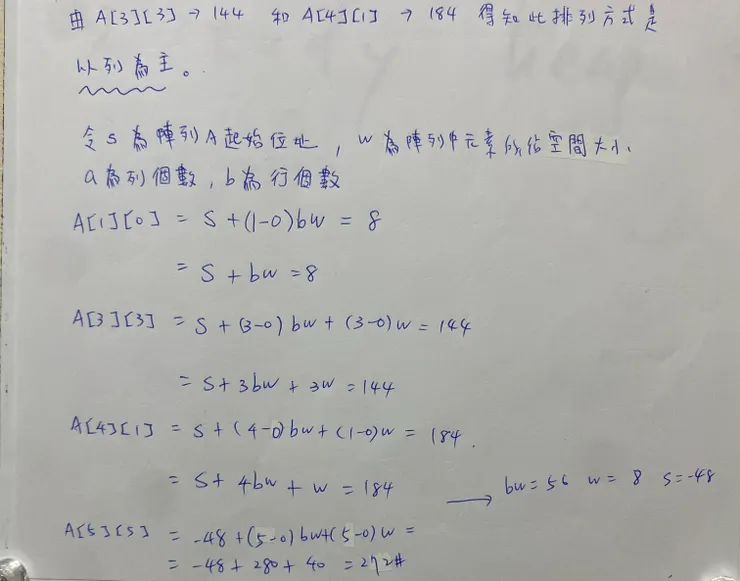 由 A[3][3] → 144 和 A[4][1] → 184 得知此排列方式是
以列為主。
令 S 為陣列 A 起始位址, w 為陣列中元素所佔空間大小、
a 為列個數, b 為行個數
A[1][0] = S + (1-0)bw = 8
= S + bw = 8
A[3][3] = S + (3-0)bw + (3-0)w = 144
= S + 3bw + 3w = 144
A[4][1] = S + (4-0)bw + (1-0)w = 184.
= S + 4bw + w = 184 → bw = 56 w = 8 S = -48
A[5][5] = -48 + (5-0)bw + (5-0)w =
= -48 + 280 + 40 = 272#